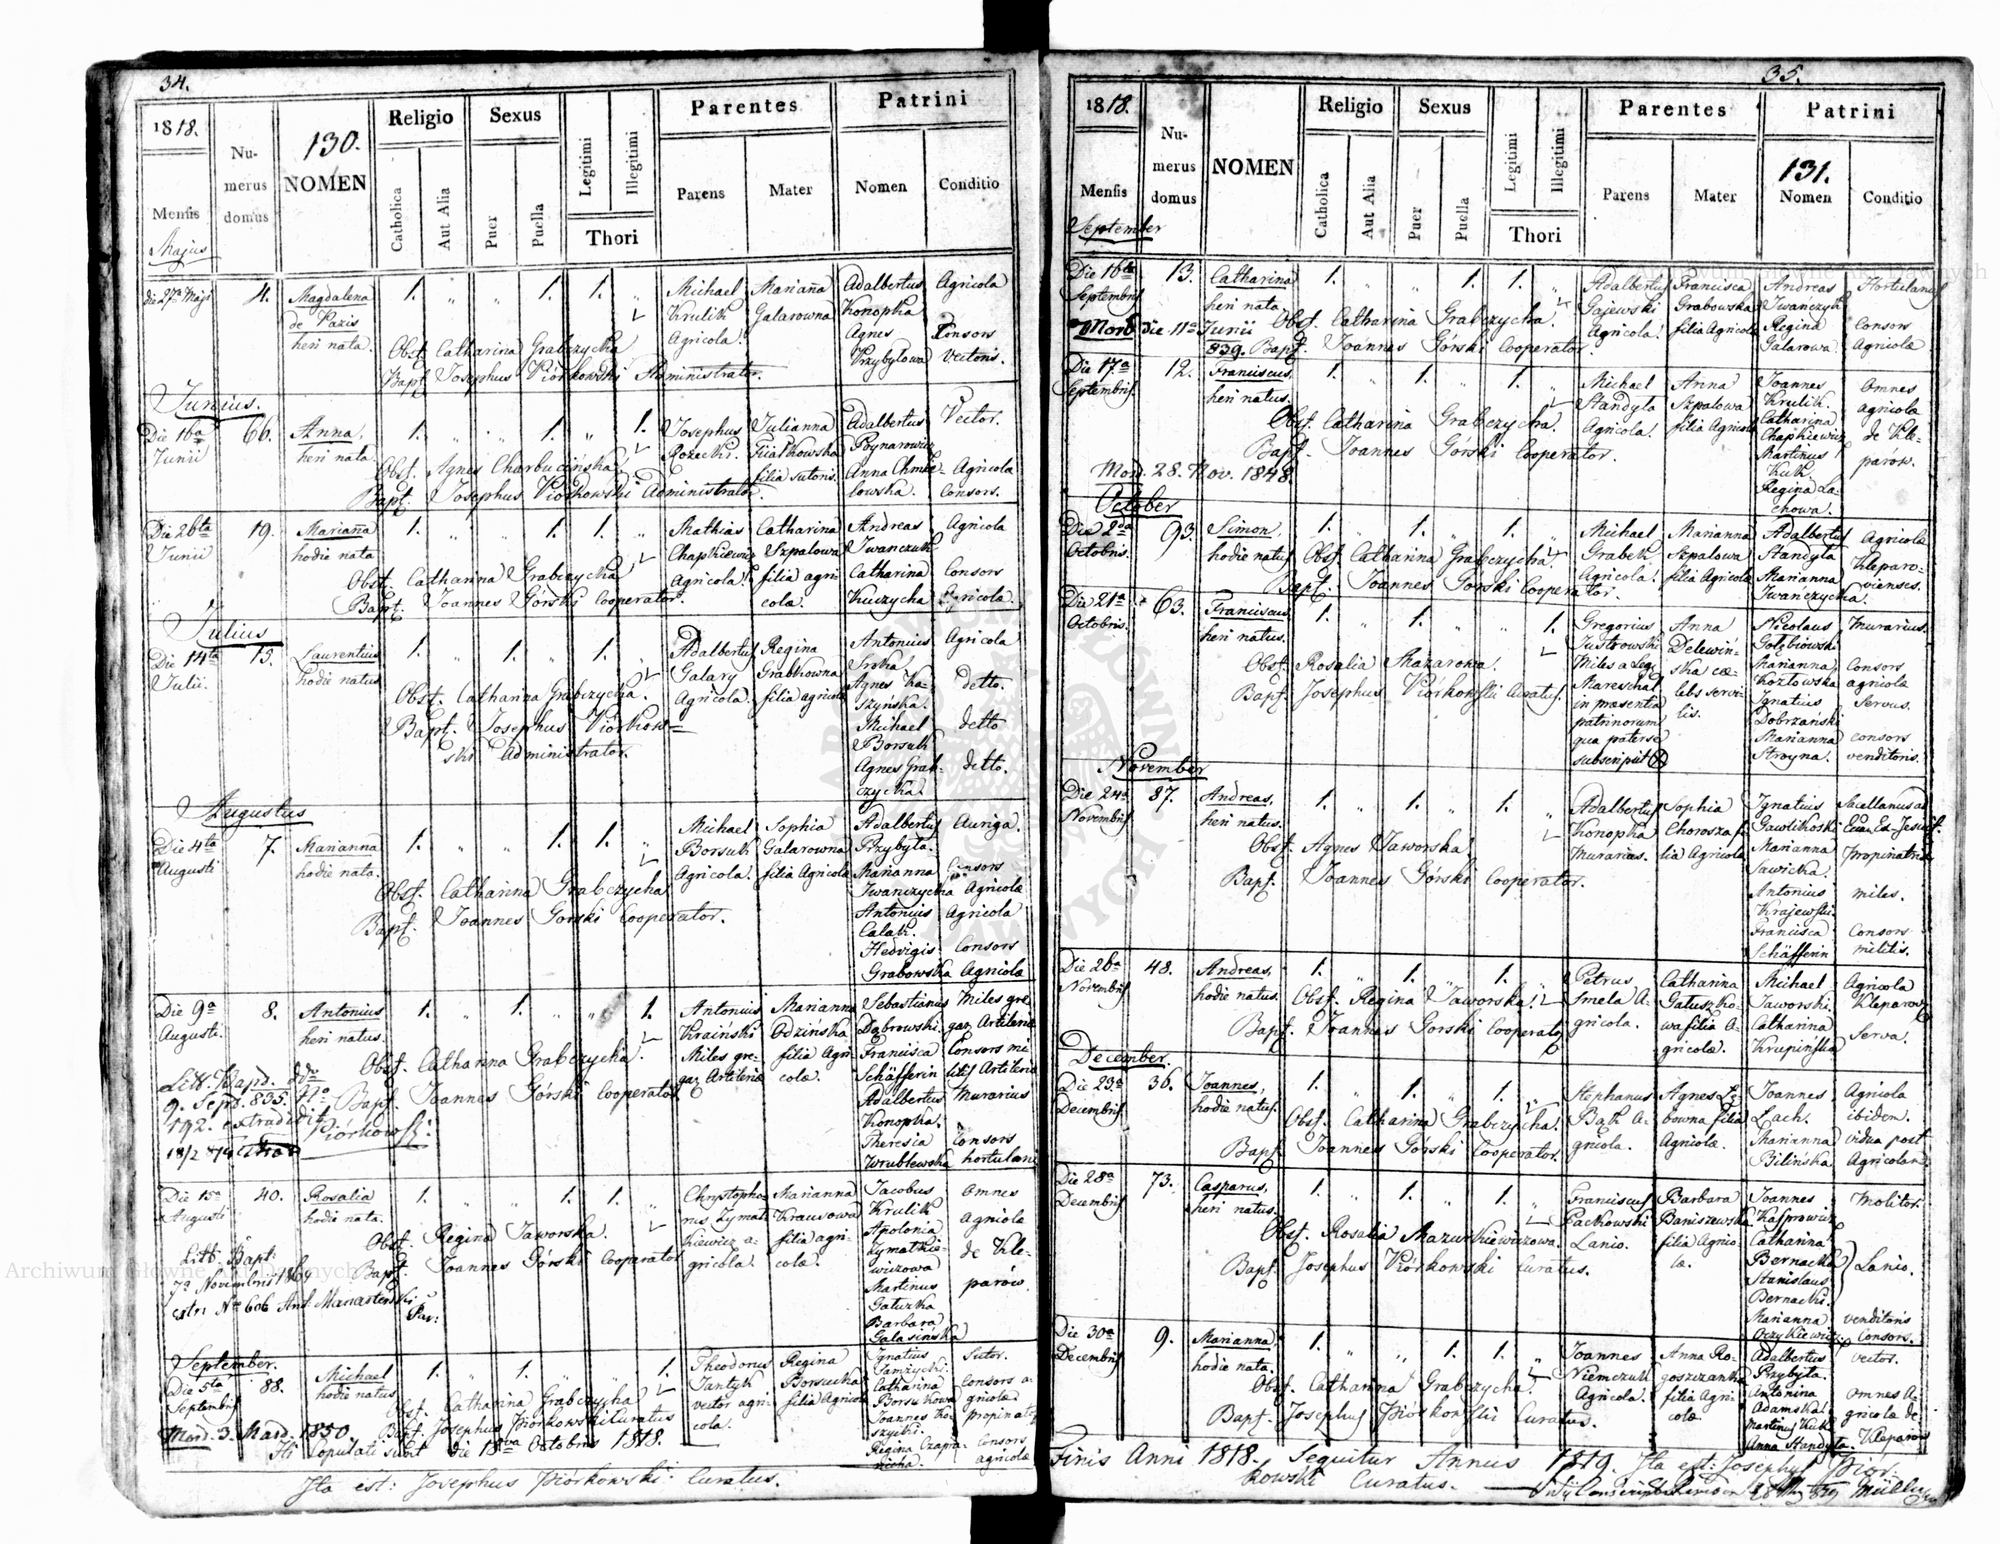 34.
1818.
Mensis
Numerus domus
130.
NOMEN
Religio
Catholica
Aut Alia
Sexus
Puer
Puella
Legitimi
Illegitimi
Thori
Parentes
Parens
Mater
Patrini
Nomen
Conditio
Majus
die 27a Maji 4. Magdalena de Pazis heri nata. 1. „ „ 1. 1. „
Michael Krulik Agricola.
Marianna Galarowna
Adalbertus Konopka
Agnes Przybylowa
Agricola
Consors vectoris.
Obst. Catharina Grabczycha
Bapt. Josephus Piórkowski Administrator.
Junius.
Die 16a Junii 66. Anna, heri nata 1. „ „ 1. „ 1.
Josephus Rozecki.
Julianna Fiałkowska filia sutoris.
Adalbertus
Anna Chmielowska.
Vector.
Agricola Consors.
Obst. Agnes Charbucińska
Bapt. Josephus Piórkowski Administrator.
Die 26ta Junii 19. Marianna hodie nata 1. „ „ 1. 1. „
Mathias Chapkiewicz Agricola.
Catharina Szpalowa filia agricolæ
Andreas Iwanczuk
Catharina Kuczycha
Agricola
Consors Agricola.
Obst. Catharina Grabczycha
Bapt. Joannes Górski Cooperator.
Julius
Die 14ta Julii. 15. Laurentius hodie natus 1. „ 1. „ 1. „
Adalbertus Galary Agricola.
Regina Grabkowna filia agricolæ
Antonius Sroka,
Agnes Kaszyńska.
Michael Borsuk
Agnes Grabczycha.
Agricola
detto.
detto
detto.
Obst. Catharina Grabczycha.
Bapt. Josephus Piórkowski Administrator.
Augustus
Die 4ta Augusti 7. Marianna hodie nata. 1. „ „ 1. 1. „
Michael Borsuk Agricola.
Sophia Galarowna filia Agricolæ
Adalbertus Przybyła.
Marianna Iwanczycha
Antonius Calak.
Hedvigis Grabowska
Auriga.
Consors Agricolæ
Agricola
Consors Agricolæ
Obst. Catharina Grabczycha
Bapt. Joannes Gorski Cooperator.
Die 9a Augusti. 8. Antonius heri natus. 1. „ 1. „ „ 1.
Antonius Kraiński Miles gregar. Artileriæ
Marianna Odzińska filia Agricolæ.
Sebastianus Dąbrowski.
Francisca Schäfferin
Adalbertus Konopka.
Theresia Wrublewska
Miles gregar. Artileriæ
Consors militis Artileriæ
Murarius
Consors hortulani
Obst. Catharina Grabczycha.
Bapt. Joannes Górski Cooperator
Litt. Bapt. ddo
9. Sept. 835. No
192. extradidit
Piórkowski
Die 15a Augusti 40. Rosalia hodie nata. 1. „ „ 1. 1. „
Christophorus Zymatkiewicz agricola.
Marianna Krausowa filia agricolæ.
Jacobus Krulik
Apolonia Zymatkiewiczowa
Martinus Gatuzka
Barbara Galasinska
Omnes agricolæ de Kleparów.
Obst. Regina Jaworska.
Bapt. Joannes Górski Cooperator
Litt. Bapt.
7a Novembris 1869
extr. No 606 Ant. Manasterski
Par:
September.
Die 5ta Septembris 88. Michael hodie natus 1. „ 1. „ „ 1.
Theodorus Jantyk vector agricola.
Regina Borsucka filia Agricolæ
Ignatius
Catharina Borsukowa
Joannes
Regina
Sutor.
Consors agricolæ
Consors agricolæ
Obst. Catharina Grabczycha
Bapt. Josephus Piórkowski Curatus
Mort. 3. Mart. 1850
Hi Copulati sunt die 18va Octobris 1818.
Ita est: Josephus Piórkowski Curatus.
35.
1818.
Mensis
Numerus domus
NOMEN
Religio
Catholica
Aut Alia
Sexus
Puer
Puella
Legitimi
Illegitimi
Thori
Parentes
Parens
Mater
Patrini
131.
Nomen
Conditio
September
Die 16ta Septembris 13. Catharina heri nata. 1. „ „ 1. 1. „
Adalbertus Gajewski Agricola.
Francisca Grabowska filia Agricolæ
Andreas Iwanczyk
Regina Galarowa
Hortulanus
Consors Agricolæ
Obst. Catharina Grabczycha.
Mort. die 11a Junii 839.
Bapt. Joannes Górski Cooperator.
Die 17a Septembris 12. Franciscus heri natus. 1. „ 1. „ 1. „
Michael Standyla Agricola.
Anna Szpalowa filia Agricolæ
Joannes Krulik.
Catharina Chapkiewicz
Martinus Kuk
Regina Lachowa.
Omnes agricolæ de Kleparów.
Obst. Catharina Grabczycha.
Bapt. Joannes Górski Cooperator.
Mort. 28. Nov. 1848.
October
Die 2da Octobris. 93. Simon, hodie natus 1. „ 1. „ 1. „
Michael Grabek Agricola.
Marianna Szpalowa filia Agricolæ
Adalbertus Standyla
Marianna Iwanczycha.
Agricolæ Kleparovienses.
Obst. Catharina Grabczycha.
Bapt. Joannes Gorski Cooperator.
Die 21a Octobris. 63. Franciscus heri natus. 1. „ 1. „ „ 1.
Gregorius Justrowski Miles a Leg. Mareschal in præsentia patrinorum qua pater se subscripsit
Anna Delewińska cælebs servilis.
Nicolaus Gołębiowski
Marianna Kozłowska
Ignatius Dobrzański
Marianna Stroyna.
Murarius.
Consors agricolæ
Servus.
consors venditoris.
Obst. Rosalia Mazarowa.
Bapt. Josephus Piórkowski Curatus.
November
Die 24a Novembris 87. Andreas, heri natus. 1. „ 1. „ 1. „
Adalbertus Konopka Murarius.
Sophia Chorosza filia Agricolæ
Ignatius Gawlikoski
Marianna Sawicka
Antonius Krajewski.
Francisca Schäfferin
miles.
Consors militis.
Obst. Agnes Jaworska.
Bapt. Joannes Górski Cooperator.
Die 26a Novembris 48. Andreas, hodie natus. 1. „ 1. „ 1. „
Petrus Smela Agricola.
Catharina Gatuszkowa filia Agricolæ.
Michael Jaworski.
Catharina Krupińska
Agricola Kleparov.
Serva.
Obst. Regina Jaworska.
Bapt. Joannes Gorski Cooperator
December.
Die 23a Decembris. 36. Joannes, hodie natus. 1. „ 1. „ 1. „
Stephanus Bąk Agricola.
Agnes filia Agricolæ.
Joannes Lach.
Marianna Bilińska
Agricola ibidem.
vidua post Agricolam
Obst. Catharina Grabczycha.
Bapt. Joannes Górski Cooperator.
Die 28a Decembris 73. Casparus, heri natus. 1. „ 1. „ 1. „
Franciscus Packowski Lanio.
Barbara Baniszewska filia Agricolæ.
Joannes Kasprowicz
Catharina Bernacka
Stanislaus Bernacki.
Marianna
Molitor.
Lanio.
venditoris Consors.
Obst. Rosalia Mazurkiewiczowa.
Bapt. Josephus Piórkowski Curatus.
Die 30a Decembris 9. Marianna, hodie nata. 1. „ „ 1. 1. „
Joannes Niemczuk Agricola.
Anna Rogoszczanka filia Agricolæ
Adalbertus Przybyla.
Antonina Adamska.
Martinus Kuk
Anna Standyla.
vector.
Omnes Agricolæ de Kleparow
Obst. Catharina Grabczycha.
Bapt. Josephus Piórkowski Curatus.
Finis Anni 1818. Sequitur Annus 1819. Ita est: Josephus Piorkowski Curatus.
Archiwum Główne Akt Dawnych
Archiwum Główne Akt Dawnych